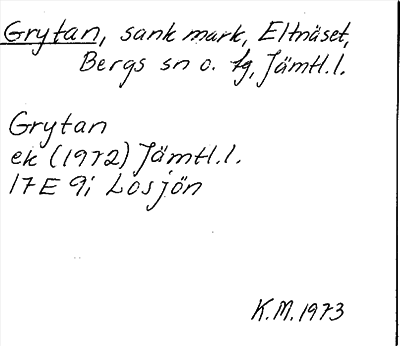 Grytan, sank mark, Eltnäset,
Bergs sn o. tg, Jämtl.l.
Grytan
ek (1972) Jämtl.l.
17E 9i Losjön
K.M. 1973